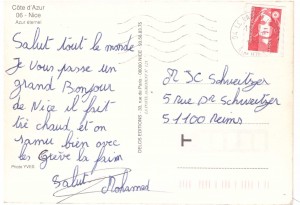 Côte d'Azur
06 - Nice
Azur éternel
Salut tout le monde
Je Vous passe un
grand Bonjour
de Nice il fait
très chaud et on
samu bien avec
les Grève la faim
Salut
Mohamed
JC Schweitzer
5 Rue Dr Schweitzer
51100 Reims